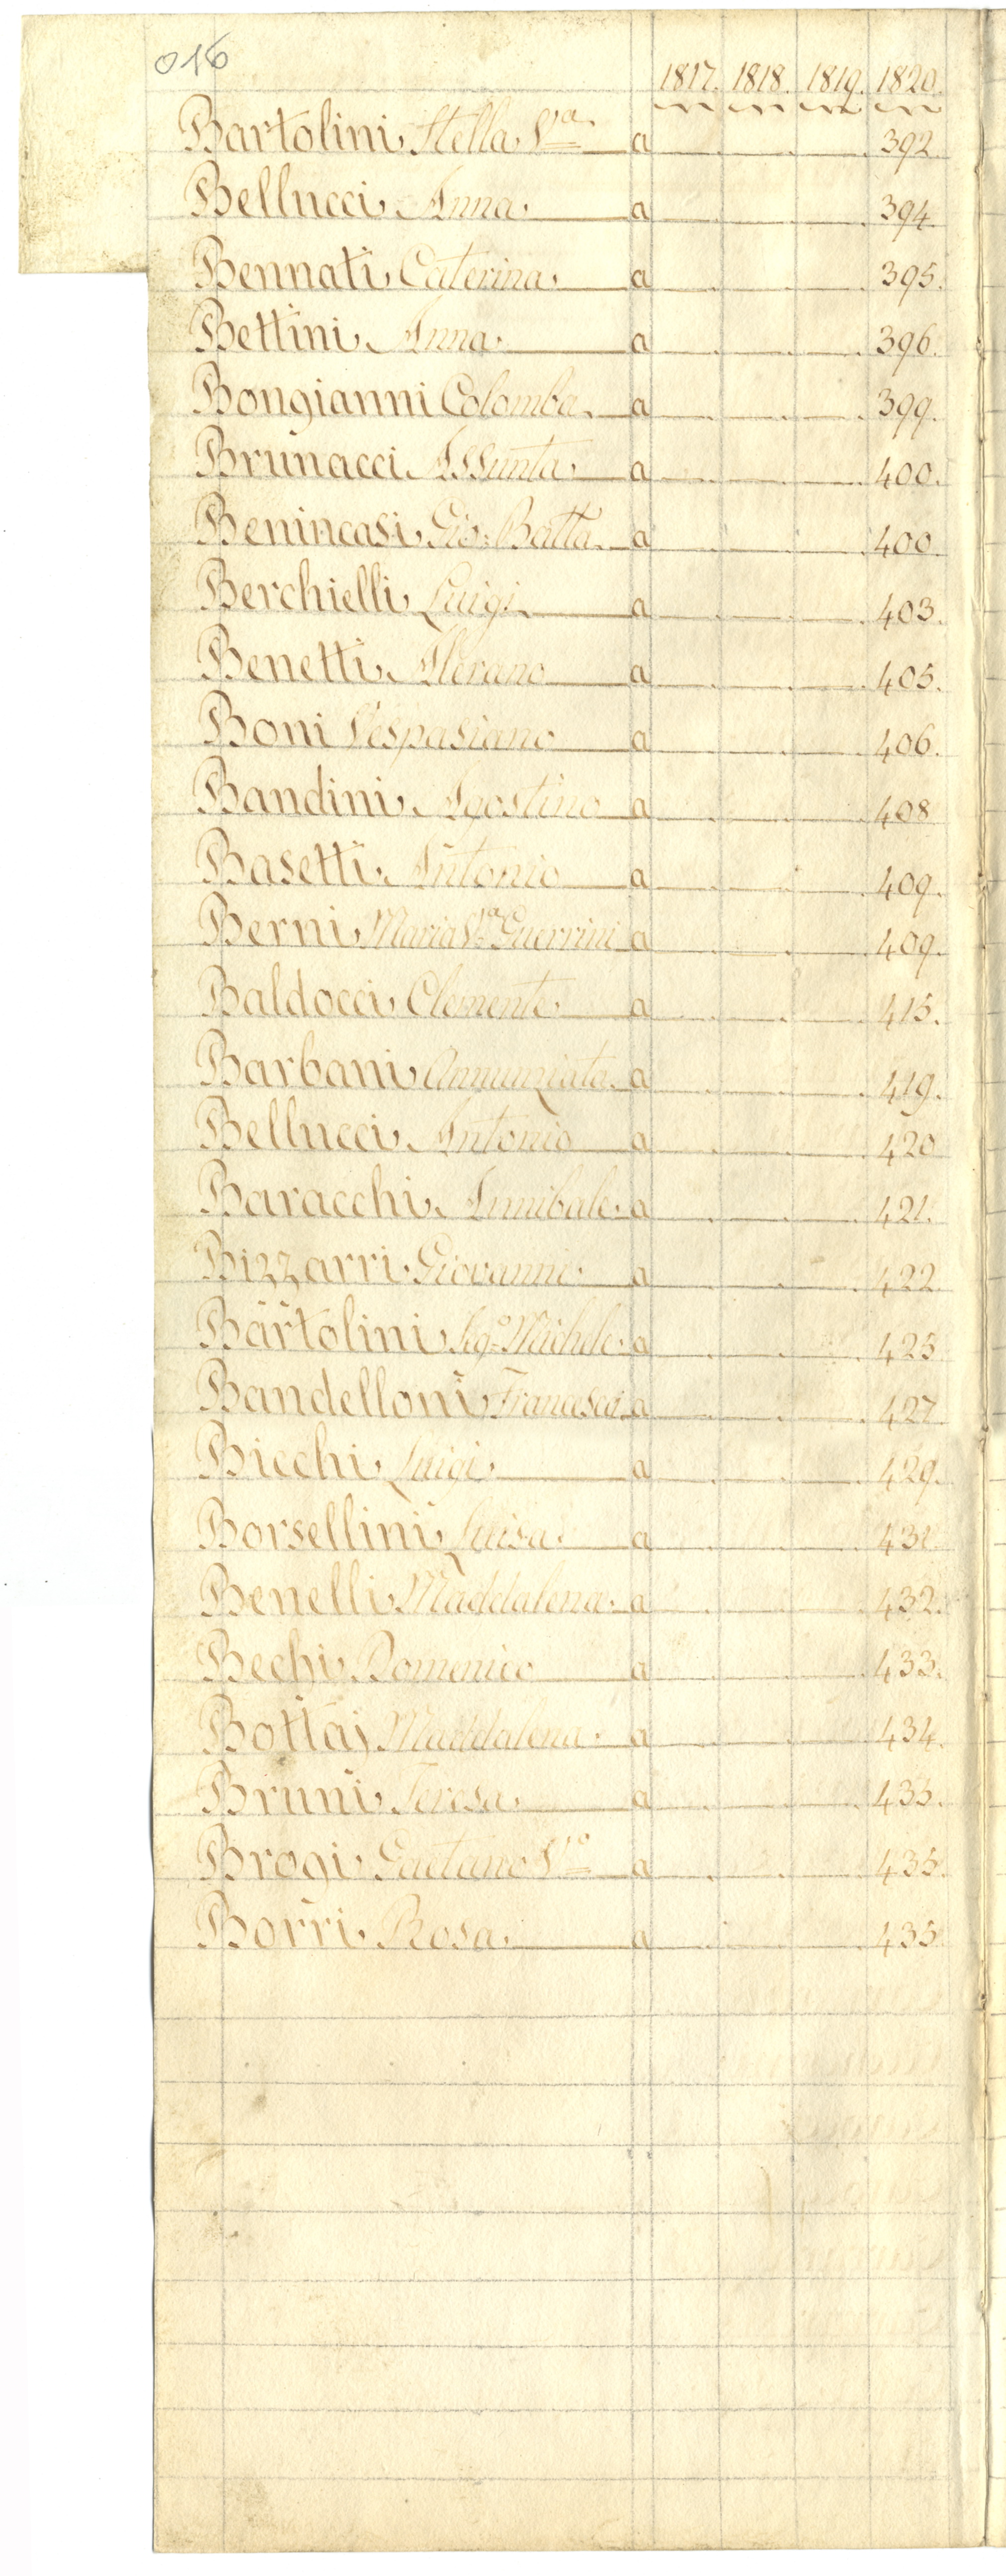 016
1817. 1818. 1819. 1820.
Bartolini Stella V.a a 392
Bellucci Anna a 394
Bennati Caterina a 395.
Bettini Anna a 396.
Bongianni Colomba a 399.
Brunacci Assunta a 400.
Benincasi Gio: Batta a 400.
Berchielli Luigi a 403.
Benetti a 405.
Boni Vespasiano a 406.
Bandini Agostino a 408
Basetti Antonio a 409.
Berni Maria V.a Guerrini a 409.
Baldocci Clemente a 415.
Barbani Annunziata a 419.
Bellucci Antonio a 420
Baracchi Annibale a 421.
Bizzarri Giovanni a 422
Bartolini Sig.o Michele a 425
Bandelloni Francesco a 427
Bicchi Luigi a 429.
Borsellini Luisa a 431
Benelli Maddalena a 432.
Bechi Domenico a 433.
Bottaj Maddalena a 434.
Bruni Teresa a 435.
Brogi Gaetano V.o a 435.
Borri Rosa a 435